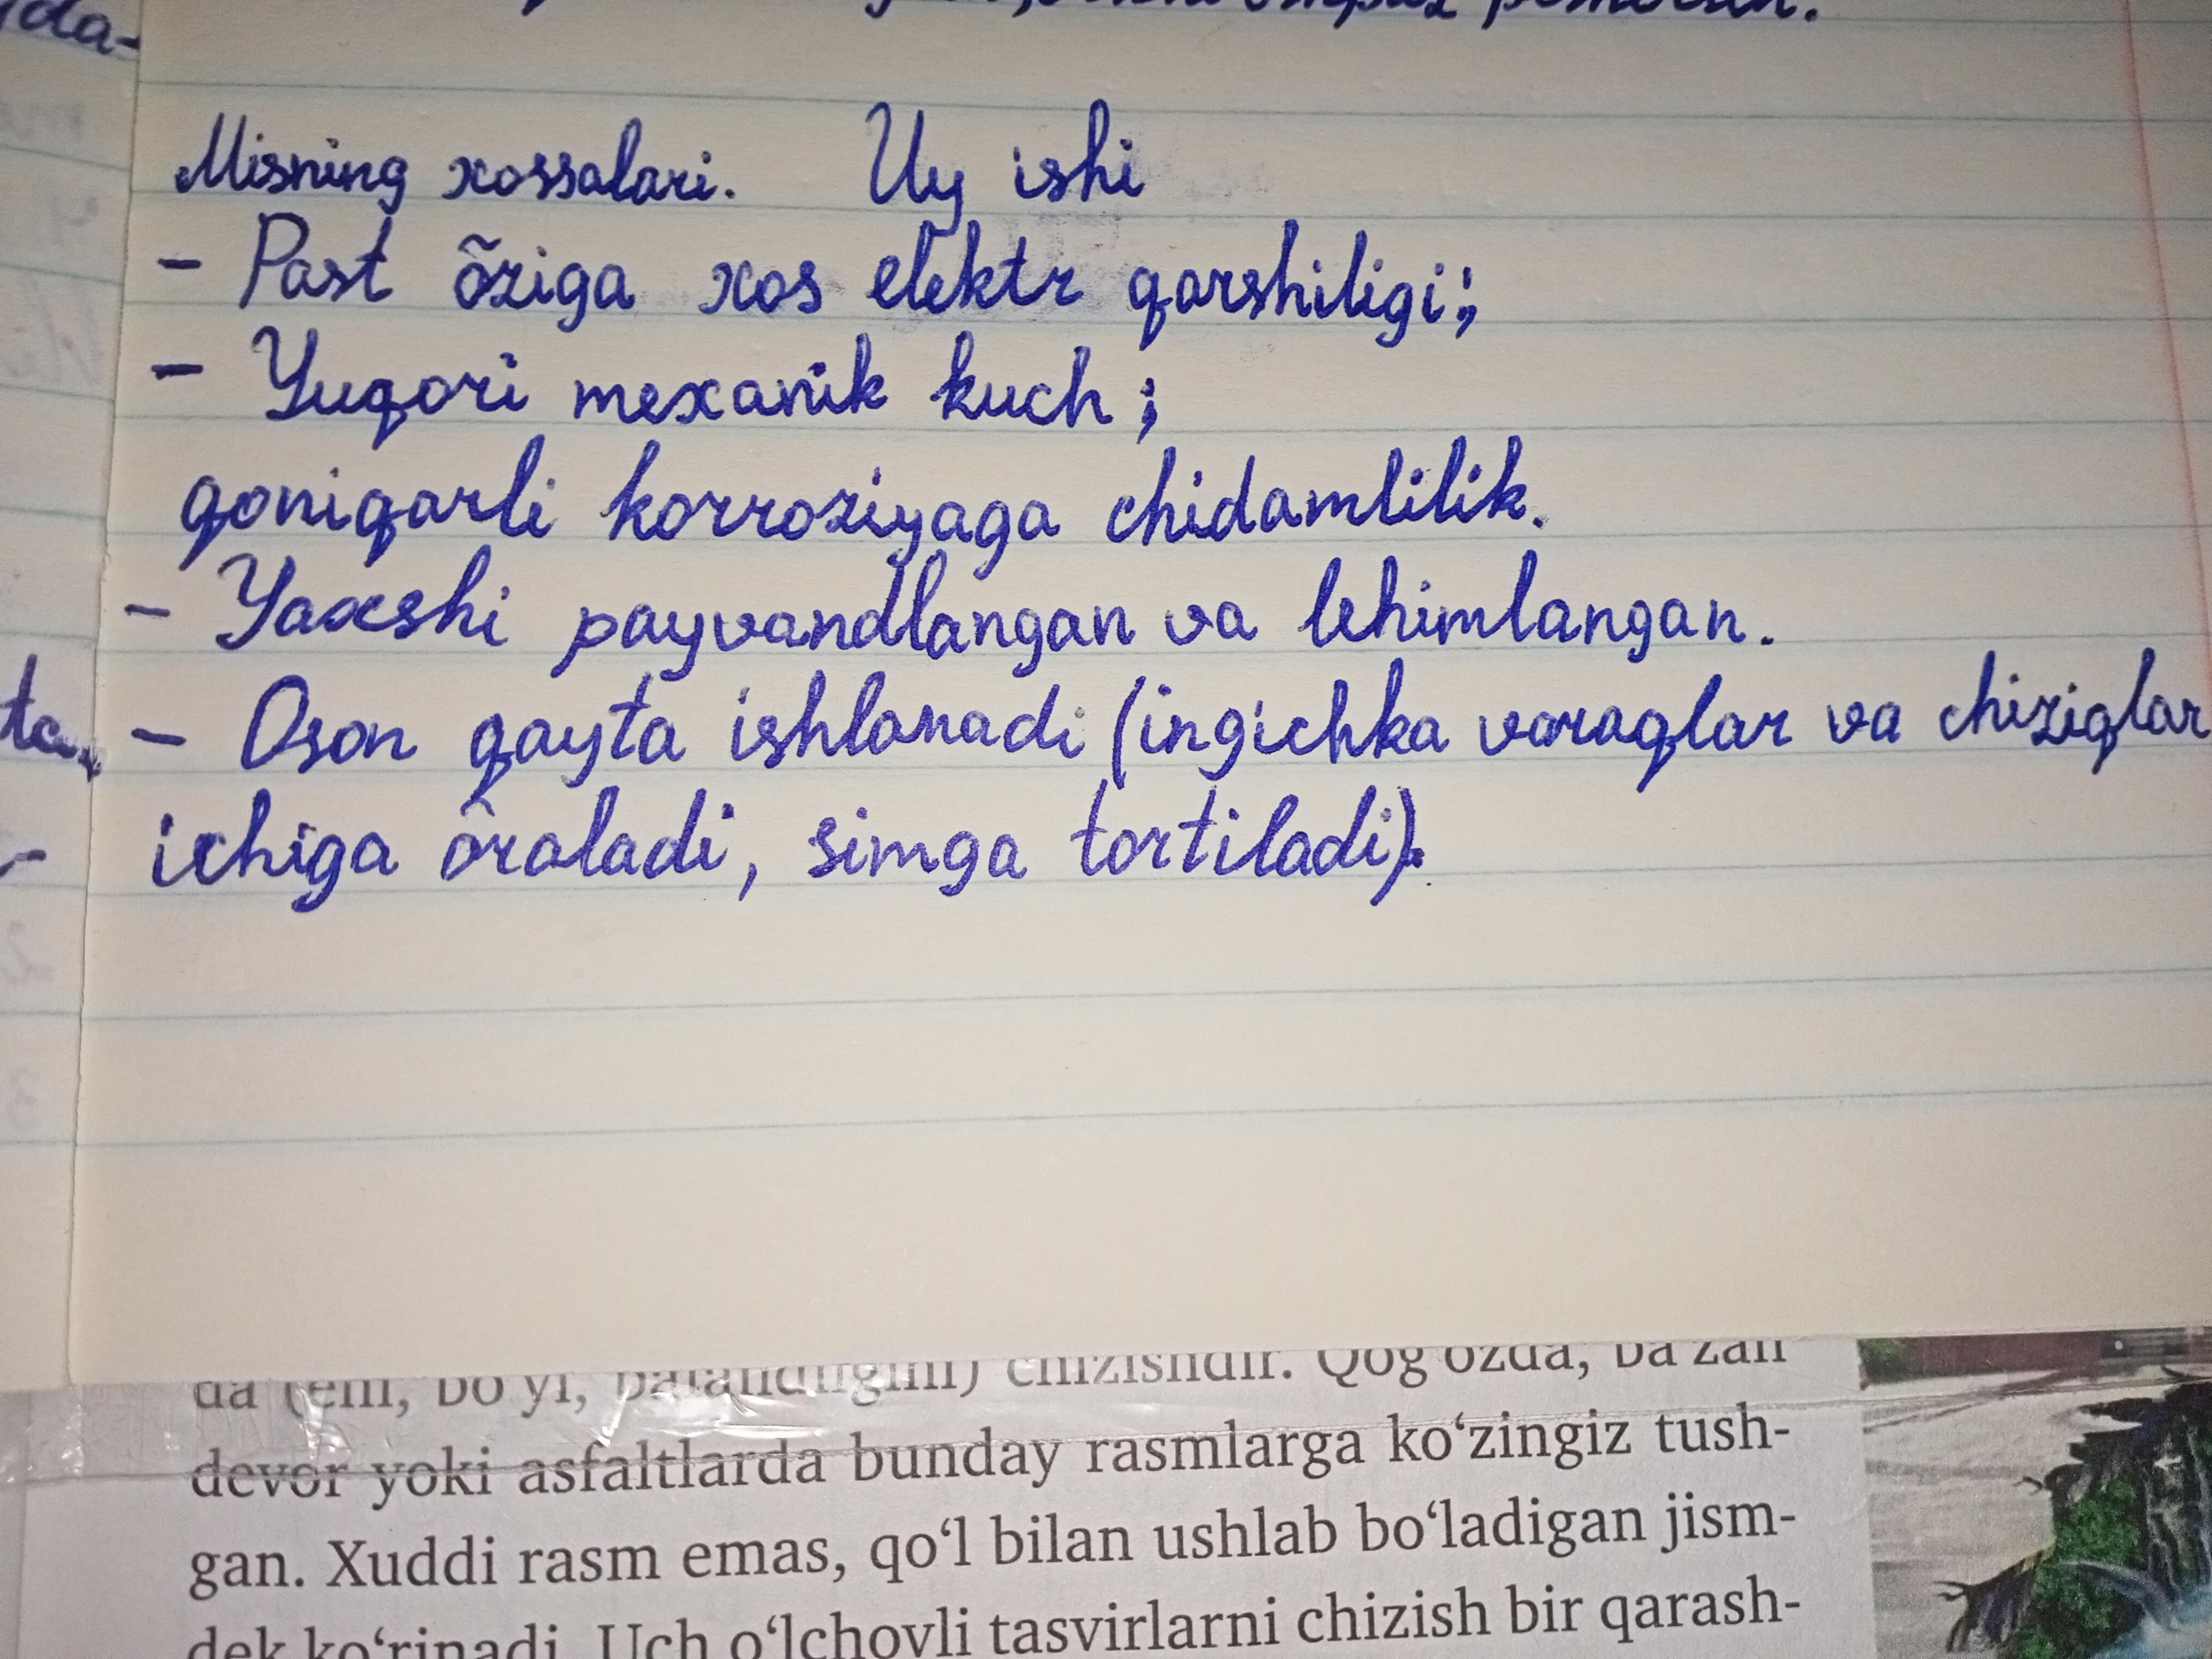 da-
Misning xossalari. Uy ishi
- Past õziga xos elektr qarshiligi;
- Yuqori mexanik kuch;
qoniqarli korroziyaga chidamlilik.
- Yaxshi payvandlangan va lehimlangan.
- Oson qayta ishlanadi (ingichka varaqlar va chiziqlar
ichiga ôraladi, simga tortiladi).
da (eni, bo‘yi, balandligini) chizishdir. Qog‘ozda, ba’zan
devor yoki asfaltlarda bunday rasmlarga ko‘zingiz tush-
gan. Xuddi rasm emas, qo‘l bilan ushlab bo‘ladigan jism-
dek ko‘rinadi. Uch o‘lchovli tasvirlarni chizish bir qarash-